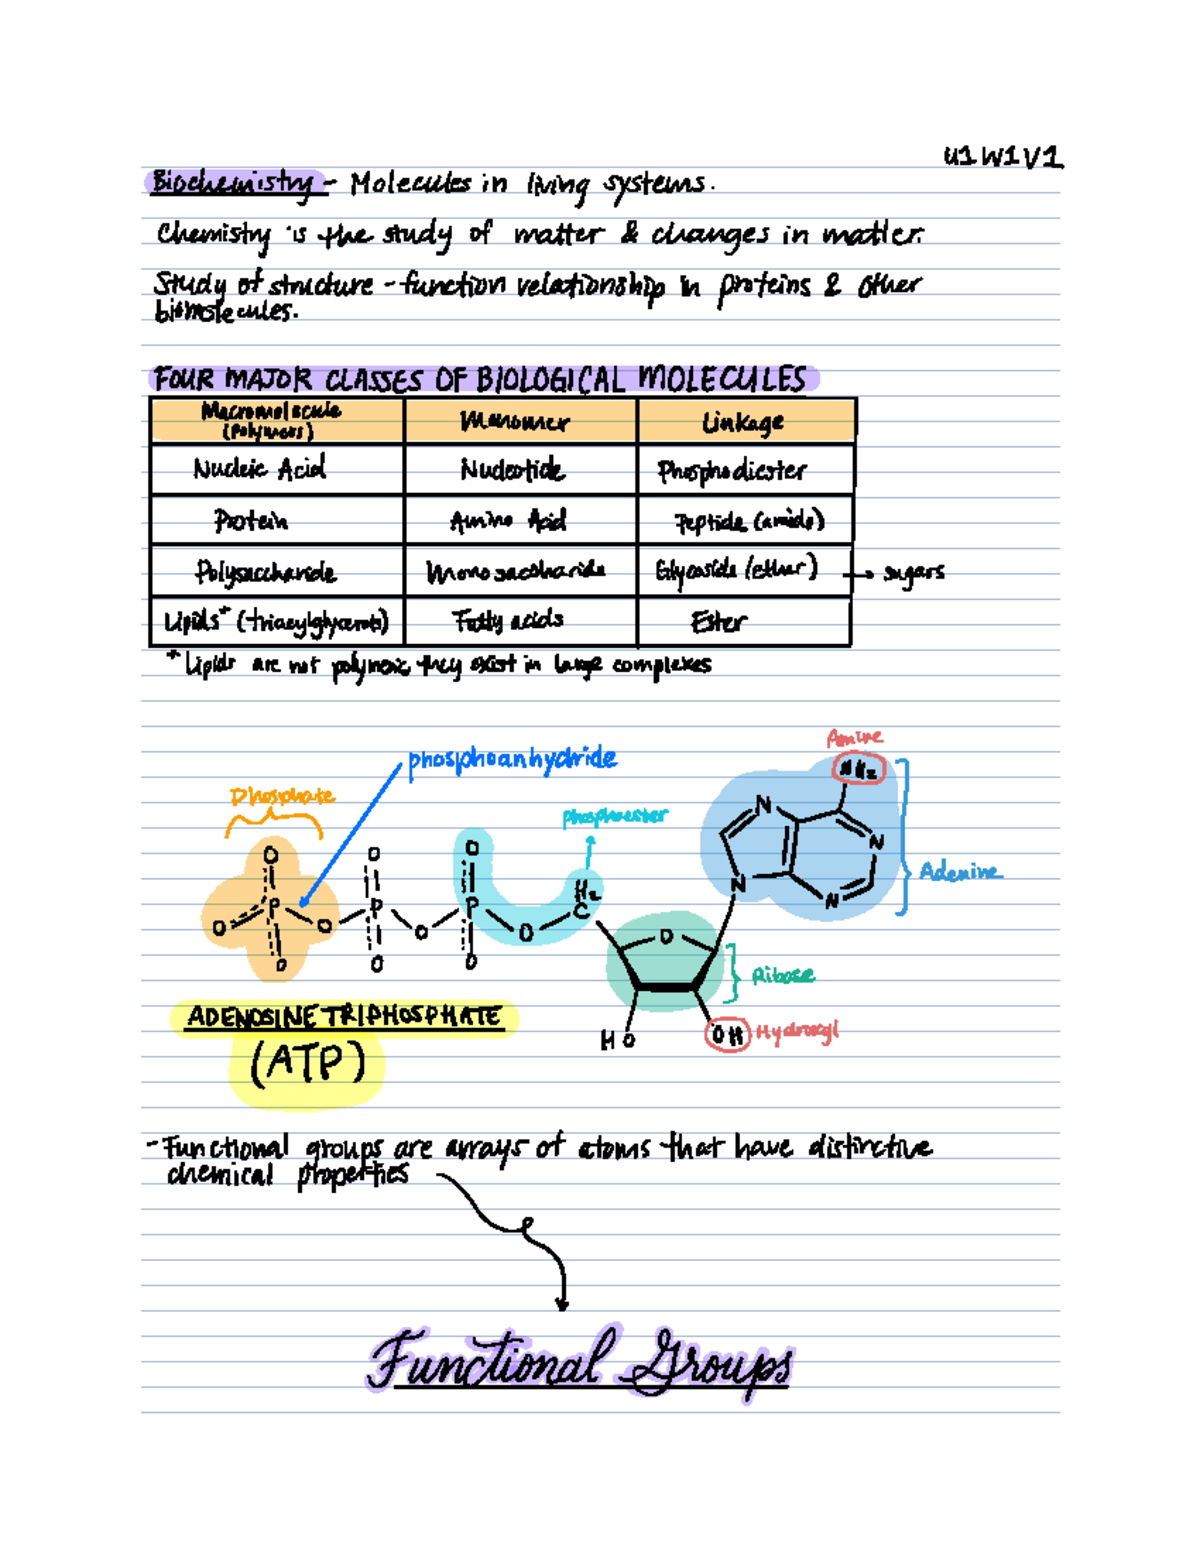 U1W1V1
Biochemistry - Molecules in living systems.
Chemistry is the study of matter & changes in matter.
Study of structure - function relationship in proteins & other
biomolecules.
FOUR MAJOR CLASSES OF BIOLOGICAL MOLECULES
Macromolecule (Polymers) Monomer Linkage
Nucleic Acid Nucleotide Phosphodiester
Protein Amino Acid Peptide (amide)
Polysaccharide Monosaccharide Glycoside (ether) → sugars
Lipids* (triacylglycerols) Fatty acids Ester
* Lipids are not polymeric, they exist in large complexes
Amine
NH₂
phosphoanhydride
Phosphate
phosphoester
Adenine
N
N
N
N
O
O
O
H₂
C
O
P
O
P
O
P
O
O
O
O
O
O
Ribose
ADENOSINE TRIPHOSPHATE
HO
OH Hydroxyl
(ATP)
- Functional groups are arrays of atoms that have distinctive
chemical properties
Functional Groups